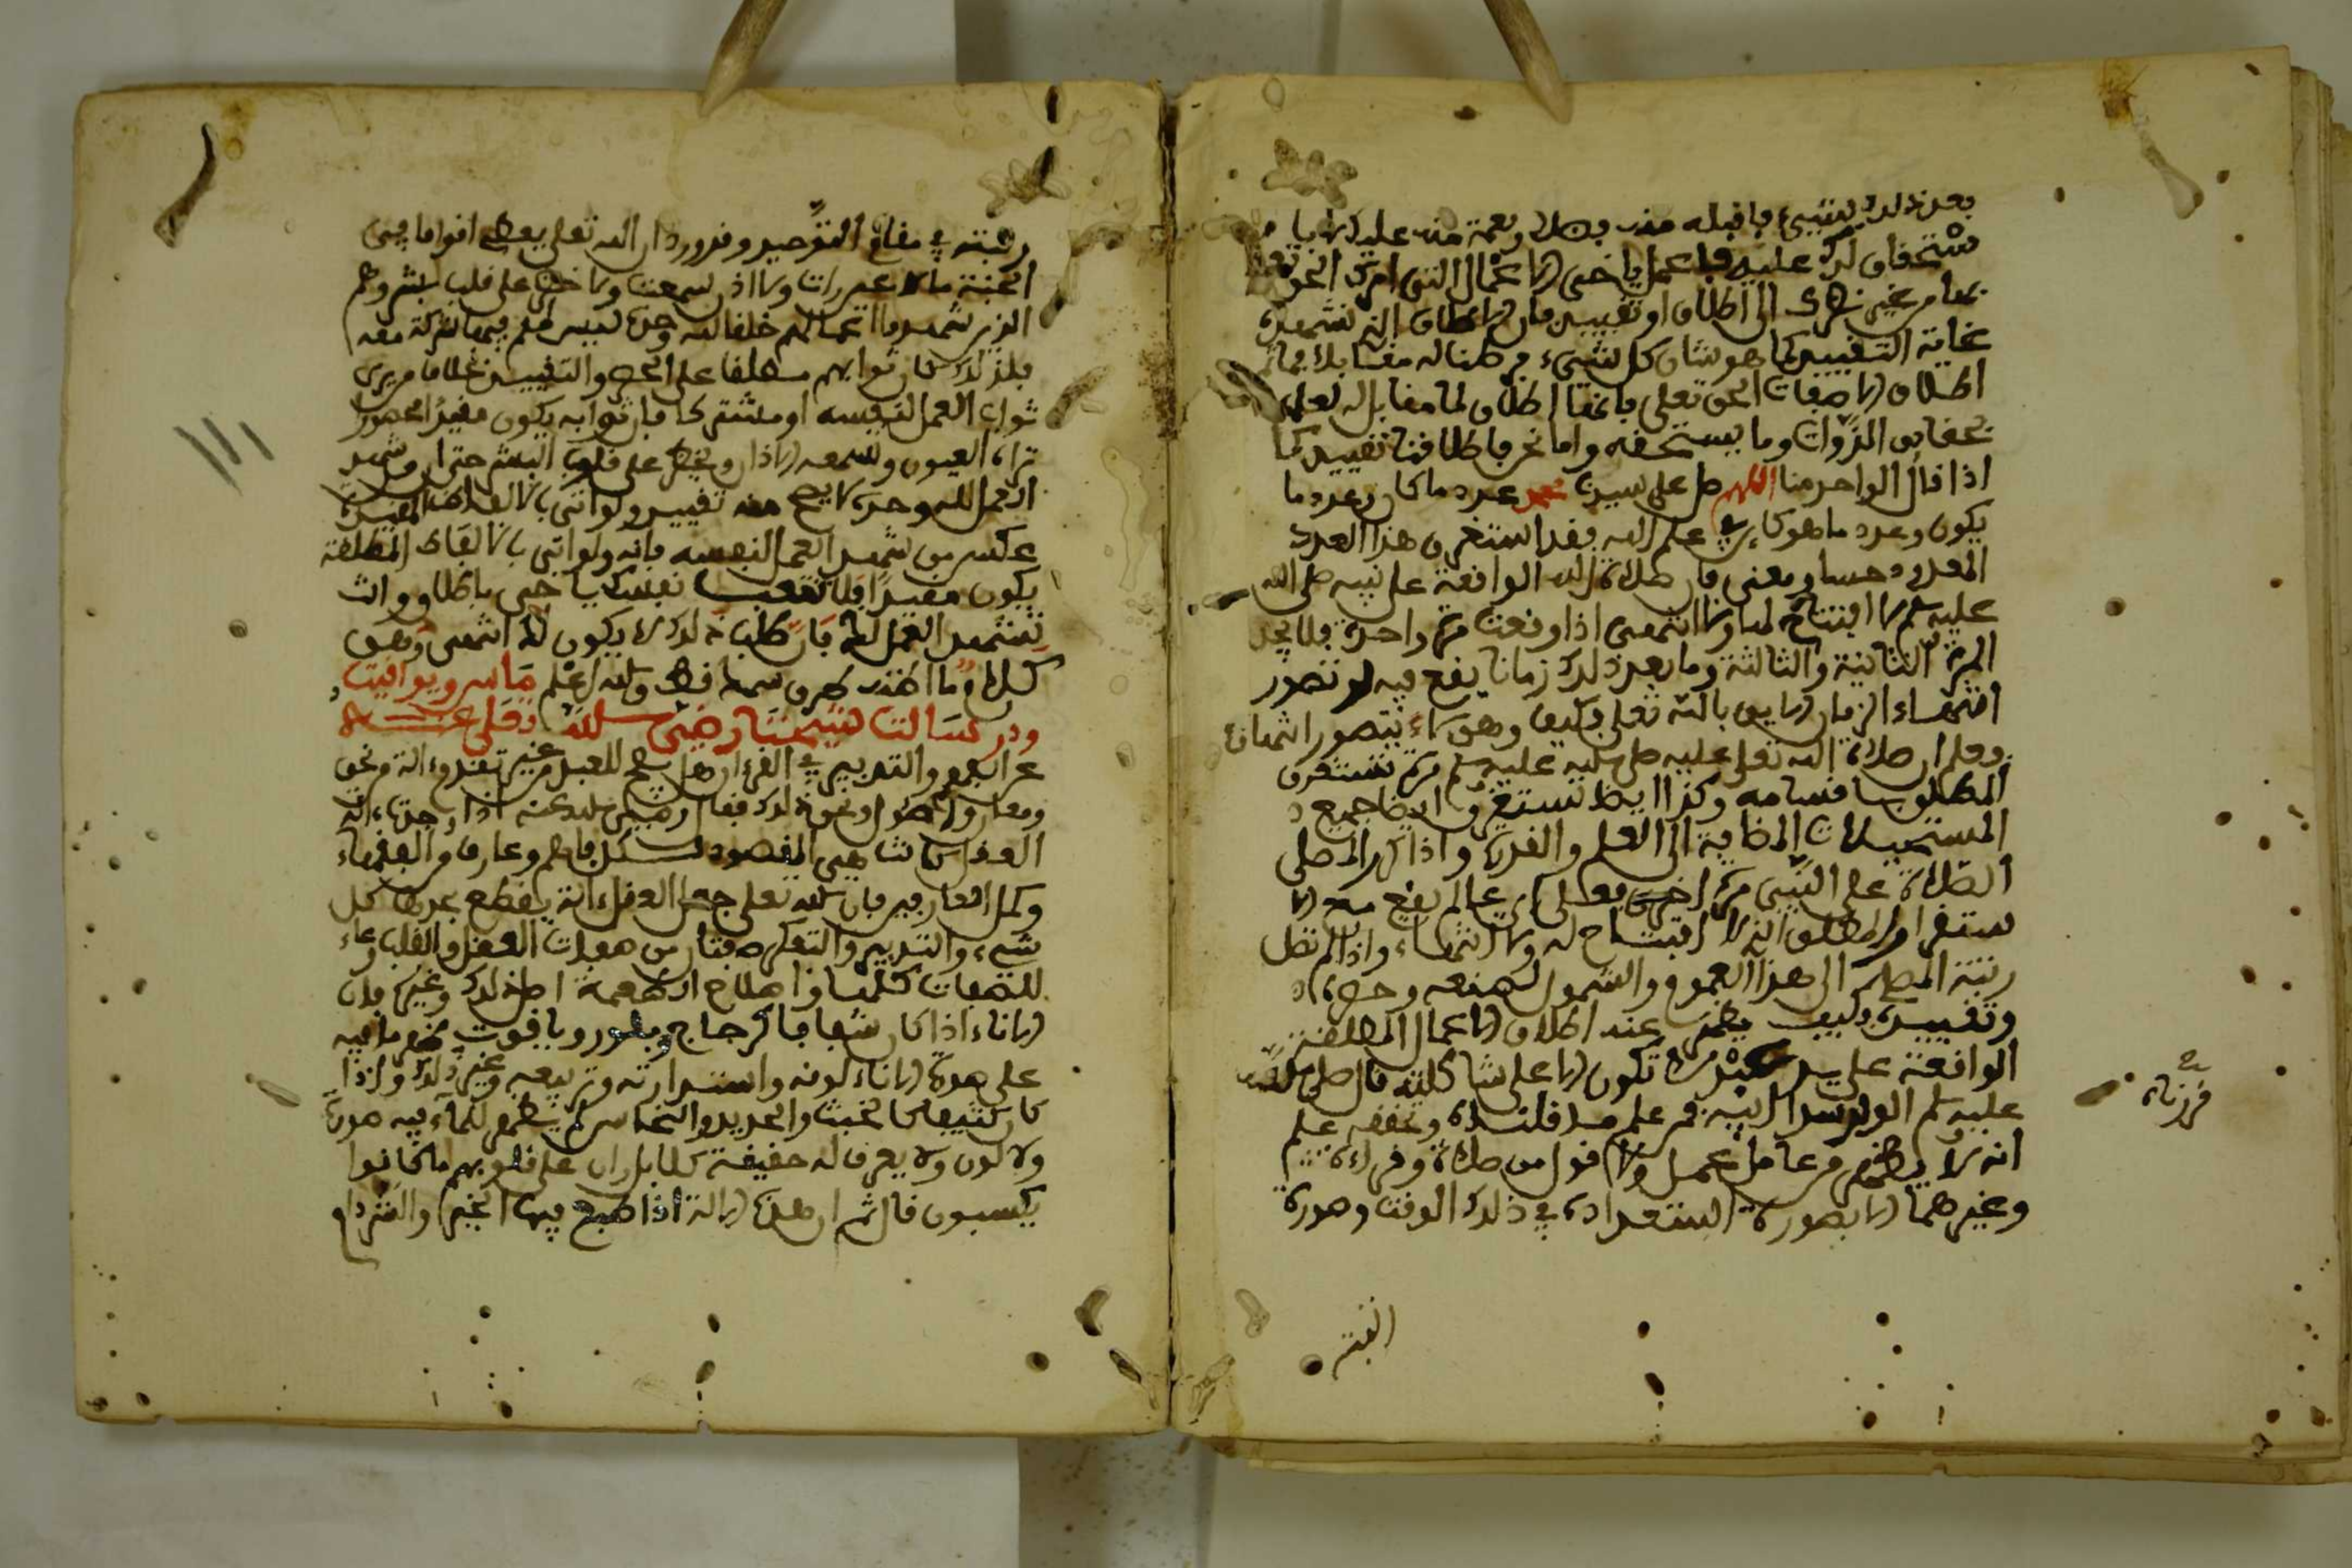 بعد ذلك بشيء فاقبله منه بفضل ونعمة منه عليك لا با
ستحقاق لك عليه فاعمل يا اخي الاعمال التي امرك الحق تعلى
بها من غير نظرك الى اطلاق او تقييد فان الاطلاق الذي تشهده
غاية التقييد كما هو شان كل شيء له مقابلا فما ثم
اطلاق الا صفات الحق تعلى فانها اطلاق لا مقابل له لعلمه
بحقايق الذوات وما يستحقه واما نحن فاطلاقنا تقييد كما
اذا قال الواحد منا اللهم صل على سيدنا محمد عدد ما كان وعدد ما
يكون وعدد ما هو كاين في علم الله فقد استغرق هذا العدد
المعدود حسا ومعنى فان صلاة الله الواقعة على نبيه صلى الله
عليه وسلم لا افتتاح لها ولا انتهى اذا وقعت مرة واحدة فلا تجد
المرة الثانية والثالثة وما بعد ذلك زمانا يقع فيه لو تصور
انتهاء الزمان اللايق بالله تعلى فكيف وهو لا يتصور انتهاؤه
فعلم ان صلاة الله تعلى عليه صلى الله عليه وسلم مرة تستغرق
المطلوب باقسامه وكذا ايضا تستغرق ايضا جميع
المستحيلات المضافة الى العلم والقدرة واذا كرر المصلي
الصلاة على النبي مرة اخرى فعلى اي عالم يقع مع الا
ستغراق المطلق الذي لا افتتاح له ولا انتهاء واذا لم تصل
رتبة المصلي الى هذا العموم والشمول لضعفه وحصره
وتقييده فكيف يطمع عند اطلاق الاعمال المطلقة
الواقعة على يد عبد لا تكون الا على شاكلته قال صلى الله
عليه وسلم الولد سر ابيه فمن علم ما قلناه وتحققه علم
انه لا يظهر من عامل عمل ولا قول من صلاة وقراءة
وغيرهما الا بصورة استعداده في ذلك الوقت وصورة
قررناه
رتبته في مقام التوحيد وقد ورد ان الله تعلى يعطي اقواما في
الجنة ما لا عين رات ولا اذن سمعت ولا خطر على قلب بشر وهم
الذين شهدوا اعمالهم خلقا لله وحده ليس لهم فيها شركة معه
فلذلك كان ثوابهم مطلقا على الحصر والتقييد بخلاف من يرى
ثواب العمل لنفسه او مشتركا فان ثوابه يكون مقيدا محصورا
تراه العيون وتسمعه الاذان ويخطر على قلوب البشر حتى ان من شهد
العمل لله وحده لا يصح منه تقييد ولو اتى بالالفاظ المقيدة
عكس من شهد العمل لنفسه فانه ولو اتى بالالفاظ المطلقة
يكون مقيدا فلا تتعب نفسك يا اخي باطلاق وانت
تشهد العمل لك فان طلب ذلك لا يكون لك انتهى وهو
كلام ما اظنه طرق سمعك قط والله اعلم ماس ويواقيت
ودر سالت شيخنا رضي الله تعلى عنه
عن الفهم والتدبر في القران هل يصح للعبد من غير تقدم الة من نحو
ومعان واصول ونحو ذلك فقال رضي الله عنه اذا وجدت الة
العقل كانت هي المقصود لكل فاهم وعارف من الفقهاء
وكمل العارفين فان الله تعلى جعل العقل الة يقطع بحدها كل
شيء والتدبر والتفكر صفتان من صفات العقل والقلب وعاء
للصفات كلها واصلاح الطعمة اصل لذلك وغيره فان
الاناء اذا كان شفافا كزجاج وبلور وياقوت يظهر ما فيه
على صورة الاناء لونه واستدارته وتربيعه وغير ذلك واذا
كان كثيفا كالخشب والحديد والنحاس لم يظهر للماء فيه صورة
ولا لون ولا يعرف له حقيقة كلا بل ران على قلوبهم ما كانوا
يكسبون قال ثم ان هذه الالة اذا صبح فيها الخير والتزم